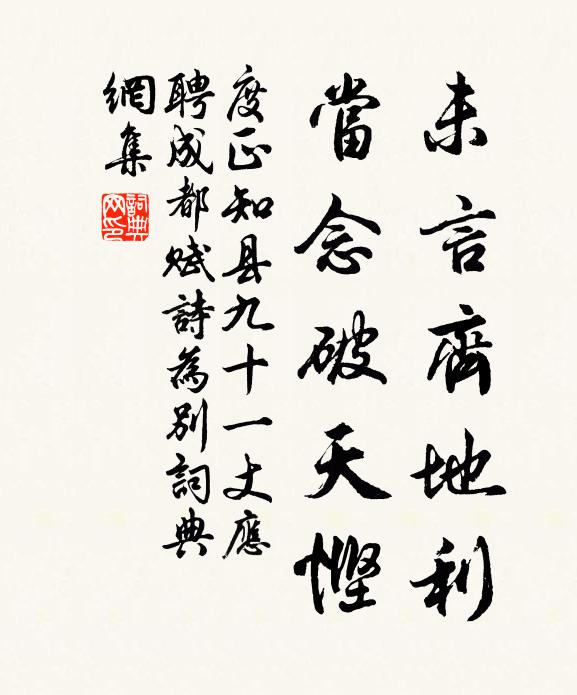 未言齊地利
當念破天慳
度正知县九十一丈應
聘成都賦詩為別詞典
網集
詞典网印